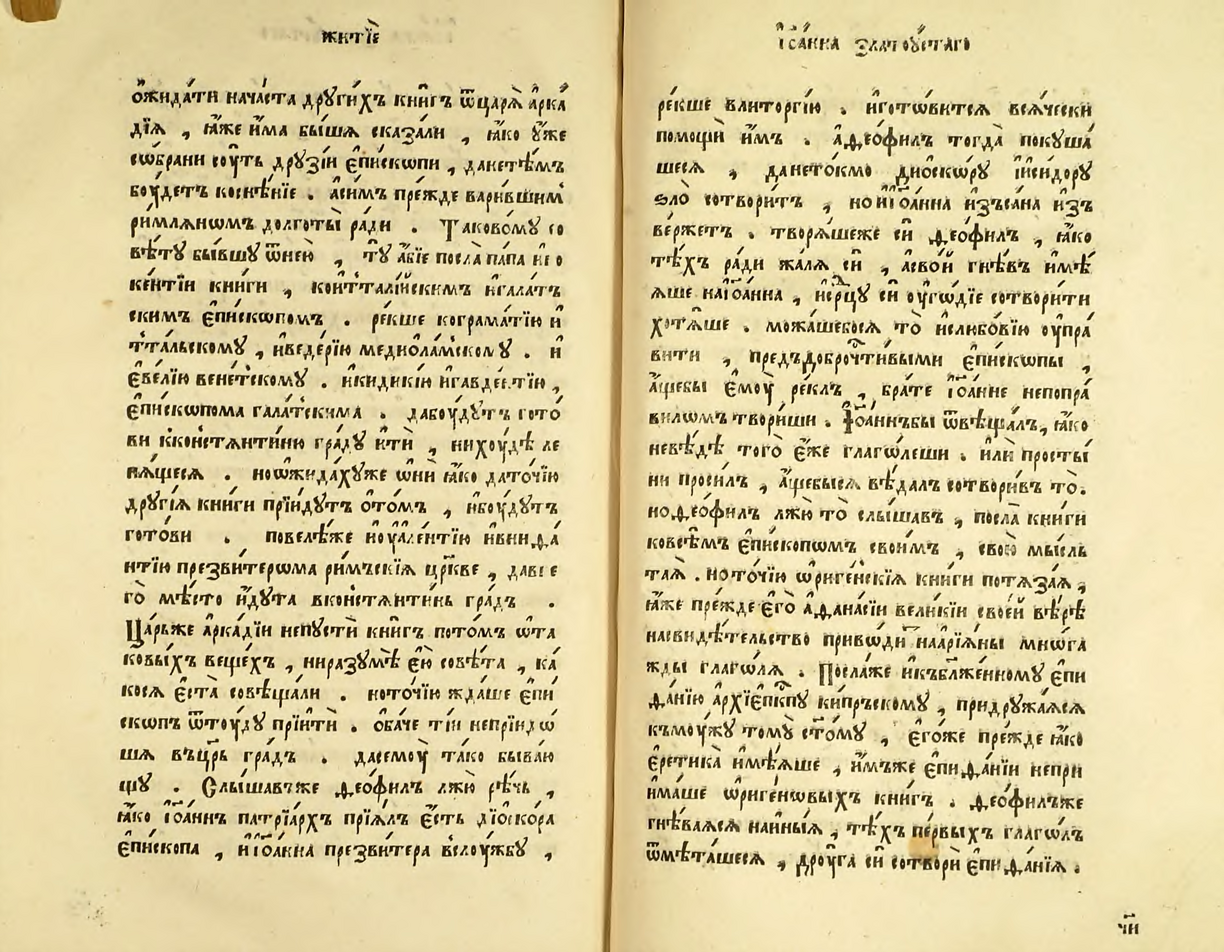 житїѐ
ѻ҆жида́ти нача́ста дрꙋги́хъ кни́гъ ѿцарѧ̀ а҆рка́
дїѧ , ꙗ҆́же и҆́ма бы́шѧ сказа́ли , ꙗ҆́ко ᲂу҆же
сѡ́брани сꙋ́ть дрꙋзі́и є҆пи́скѡпи , данетѣ́мъ
бꙋ́детъ косне́нїе . а҆си́мъ пре́жде вари́вшимъ
ри́млѧнѡмъ долготы̀ ра́ди . Таково́мꙋ со
вѣ́тꙋ бы́вшꙋ ѿнею̀ , тꙋ̀ а҆́бїе посла̀ па́па и҆но
ке́нтїи кни́ги , кои҆тталі́йскимъ и҆гала́тъ
скимъ є҆пи́скѡпомъ . ре́кше когра́матїю и҆
тта́льскомꙋ , и҆веде́рїю медиѡла́мскомꙋ . и҆
є҆ве́лїю вене́тскомꙋ . и҆кидикі́ю и҆гавде́нтїю ,
є҆пи́скѡпома гала́тскима . дабꙋ́дꙋтъ гото́
ви кконстѧнти́ню гра́дꙋ и҆тѝ , нихꙋдѣ̀ ле
нѧ́щесѧ . ноѡ҆жида́хꙋже ѡ҆нѝ ꙗ҆́ко дато́чїю
дрꙋгі́ѧ кни́ги прїи́дꙋтъ ѻ҆то́мъ , и҆бꙋ́дꙋтъ
гото́ви . повелѣ́же и҆ᲂу҆але́нтїю и҆вики́ѳа
нтїю презви́терѡма ри́мъскїѧ цр҃кве , давне
го̀ мѣ́сто и҆́дꙋта вконстѧнти́нь гра́дъ .
Ца́рьже а҆рка́дїи непꙋстѝ кни́гъ пото́мъ ѡ҆та
ковы́хъ веще́хъ , ниразꙋмѣ̀ є҆ю̀ совѣ́та , ка́
косѧ є҆ста̀ совѣща́ли . ното́чїю жда́ше є҆пи́
скѡпъ ѿтꙋ́дꙋ прїитѝ . ѻ҆ба́че ті́и непрїидо́
шѧ въцр҃ь гра́дъ . дасемꙋ̀ та́ко быва́ю
щꙋ . Слы́шавъже ѳео́филъ лжю̀ рѣ́чь ,
ꙗ҆́ко і҆ѡа́ннъ патрїа́рхъ прїѧ́лъ є҆́сть дїо́скора
є҆пи́скопа , и҆і҆ѡа́нна презви́тера вслꙋ́жбꙋ ,
і҆ѡа́нна златоꙋ́стаго
ре́кше влиторгі́ю . и҆гото́витсѧ всѧ́чески
помощѝ и҆̀мъ . а҆ѳео́филъ тогда̀ покꙋша́
шесѧ , дането́кмо дио́скѡрꙋ і҆и҆си́дорꙋ
ѕло̀ сотвори́тъ , нои҆і҆ѡа́нна и҆зъса́на и҆зъ
ве́ржетъ . творѧ́шеже сѝ ѳео́филъ , ꙗ҆́ко
тѣ́хъ ра́ди жа́лѧ сѝ , а҆сво́й гнѣ́въ и҆мѣ́
ѧше наі҆ѡа́нна , и҆е҆рцꙋ̀ сѝ ᲂу҆го́дїе сотвори́ти
хотѧ́ше . можа́шебосѧ то̀ и҆слюбо́вїю ᲂу҆пра́
вити , предъдоброчти́выми є҆пи́скѡпы ,
а҆́щебы є҆мꙋ̀ ре́клъ , бра́те і҆ѡа́нне непопра́
вилѡмъ твори́ши . і҆ѡа́ннъбы ѿвѣща́лъ, ꙗ҆́ко
невѣ́дѣ того̀ є҆́же глаго́леши . и҆лѝ просты́
ни проси́лъ , а҆́щебысѧ вѣ́далъ сотвори́въ то̀.
ноѳео́филъ лжю̀ то̀ слы́шавъ , посла̀ кни́ги
ковсѣ́мъ є҆пи́скопѡмъ свои́мъ , свою̀ мы́сль
таѧ̀ . ното́чїю ѡ҆риге́нскїѧ кни́ги потѧза́ѧ ,
ꙗ҆́же пре́жде є҆го̀ а҆ѳана́сїи вели́кїи свое́й вѣ́рѣ
насвидѣ́тельство приво́ди наа҆рїѧ́ны мно́га
жды глаго́лѧ . Посла́же и҆къбл҃же́нномꙋ є҆пи
ѳа́нїю а҆рхїе҆пⷭ҇кпꙋ ки́прьскомꙋ , придрꙋжа́ѧсѧ
къмꙋ́жꙋ томꙋ̀ ст҃о́мꙋ , є҆го́же пре́жде ꙗ҆́ко
є҆рети́ка и҆мѣ́ѧше , и҆́мъже є҆пиѳа́нїи непри
има́ше ѡ҆риге́новыхъ кни́гъ . ѳео́филъже
гнѣ́ваѧсѧ наи҆ны́ѧ , тѣ́хъ пе́рвыхъ глаго́лъ
ѿмѣта́шесѧ , дрꙋ́га сѝ сотворѝ є҆пиѳа́нїѧ .
чи҃